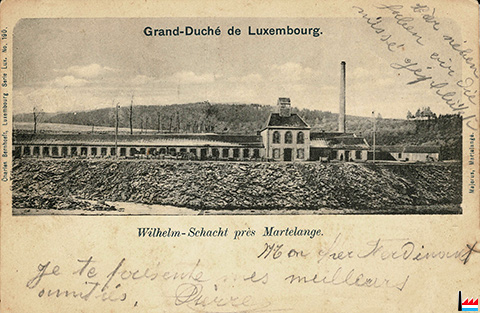 Grand-Duché de Luxembourg.
Charles Bernhoeft, Luxembourg Serie Lux. No. 190.
Majerus, Martelange.
Wilhelm-Schacht près Martelange.
Mon cher Ferdinand
Je te présente mes meilleurs
amitiés. Pierre